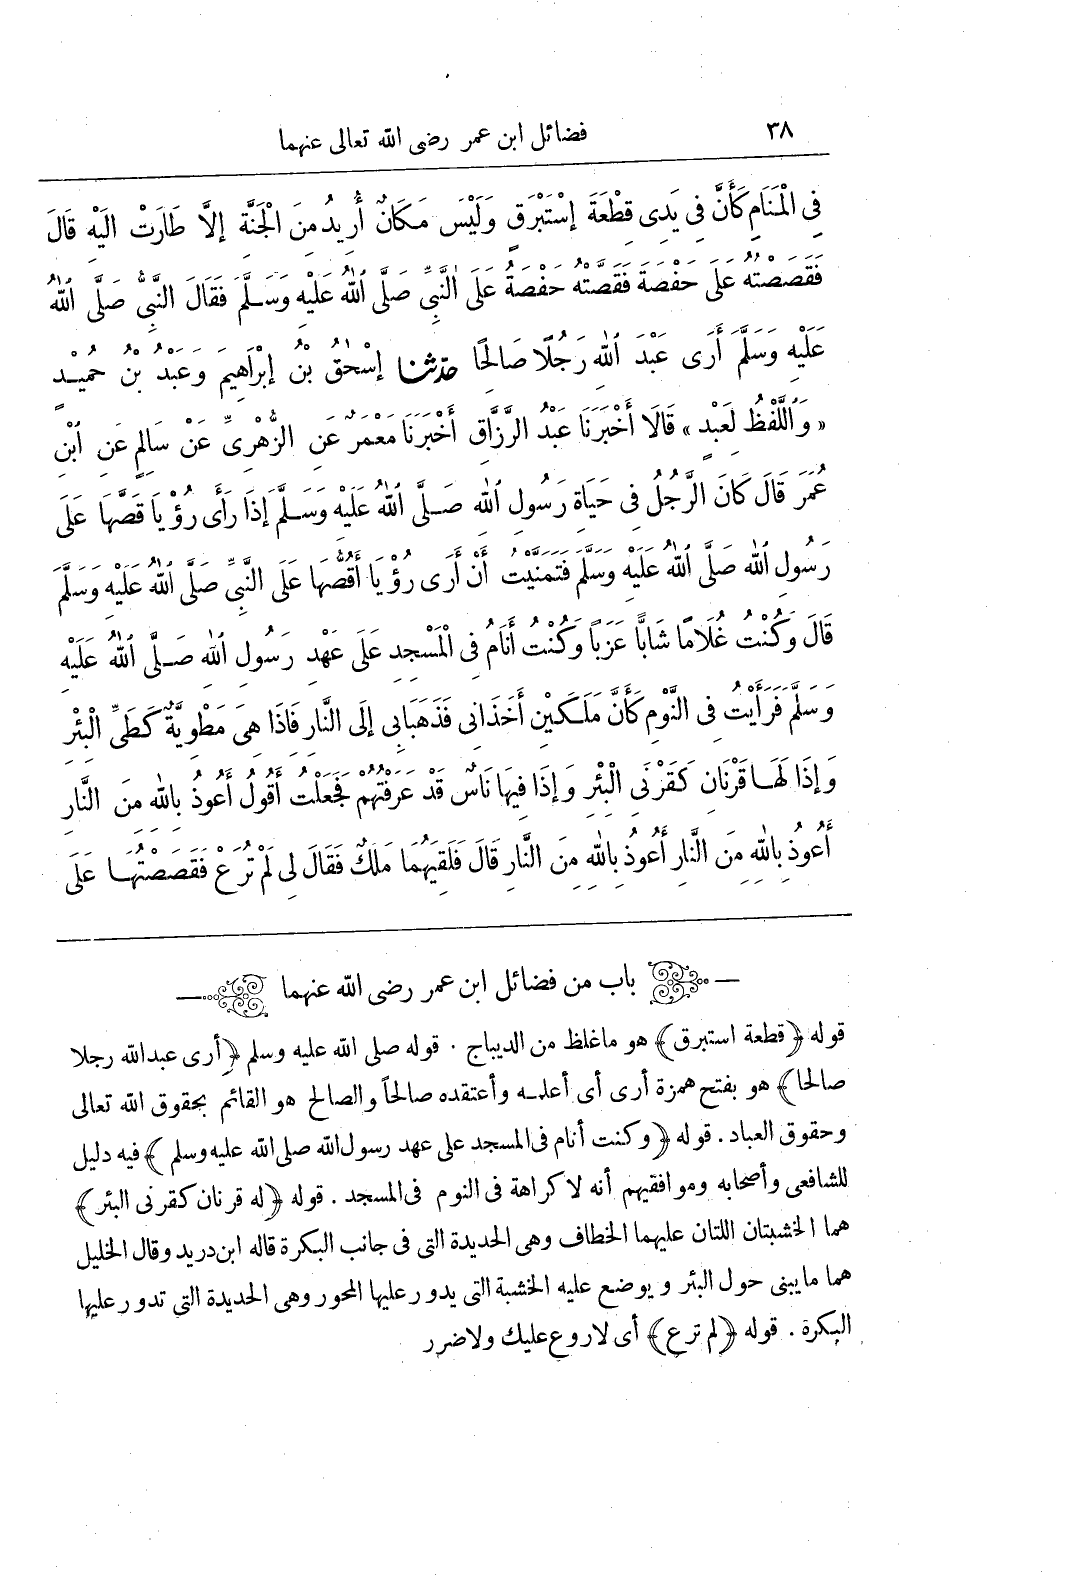 ٣٨ فضائل ابن عمر رضى الله تعالى عنهما
فِى الْمَنَامِ كَأَنَّ فِى يَدِى قِطْعَةَ إِسْتَبْرَقٍ وَلَيْسَ مَكَانٌ أُرِيدُ مِنَ الْجَنَّةِ إِلَّا طَارَتْ الَيْهِ قَالَ
فَقَصَصْتُهُ عَلَى حَفْصَةَ فَقَصَّتْهُ حَفْصَةُ عَلَى النَّبِىِّ صَلَّى اللهُ عَلَيْهِ وَسَلَّمَ فَقَالَ النَّبِىُّ صَلَّى اللهُ
عَلَيْهِ وَسَلَّمَ أَرَى عَبْدَ اللهِ رَجُلًا صَالِحًا حدثنا إِسْحٰقُ بْنُ إِبْرَاهِيمَ وَعَبْدُ بْنُ حُمَيْدٍ
«وَاللَّفْظُ لِعَبْدٍ» قَالَا أَخْبَرَنَا عَبْدُ الرَّزَّاقِ أَخْبَرَنَا مَعْمَرٌ عَنِ الزُّهْرِىِّ عَنْ سَالِمٍ عَنِ ابْنِ
عُمَرَ قَالَ كَانَ الرَّجُلُ فِى حَيَاةِ رَسُولِ اللهِ صَلَّى اللهُ عَلَيْهِ وَسَلَّمَ إِذَا رَأَى رُؤْيَا قَصَّهَا عَلَى
رَسُولِ اللهِ صَلَّى اللهُ عَلَيْهِ وَسَلَّمَ فَتَمَنَّيْتُ أَنْ أَرَى رُؤْيَا أَقُصُّهَا عَلَى النَّبِىِّ صَلَّى اللهُ عَلَيْهِ وَسَلَّمَ
قَالَ وَكُنْتُ غُلَامًا شَابًّا عَزَبًا وَكُنْتُ أَنَامُ فِى الْمَسْجِدِ عَلَى عَهْدِ رَسُولِ اللهِ صَلَّى اللهُ عَلَيْهِ
وَسَلَّمَ فَرَأَيْتُ فِى النَّوْمِ كَأَنَّ مَلَكَيْنِ أَخَذَانِى فَذَهَبَابِى إِلَى النَّارِ فَاِذَا هِىَ مَطْوِيَّةٌ كَطَىِّ الْبِئْرِ
وَإِذَا لَهَا قَرْنَانِ كَقَرْنَىِ الْبِئْرِ وَإِذَا فِيهَا نَاسٌ قَدْ عَرَفْتُهُمْ فَجَعَلْتُ أَقُولُ أَعُوذُ بِاللهِ مِنَ النَّارِ
أَعُوذُ بِاللهِ مِنَ النَّارِ أَعُوذُ بِاللهِ مِنَ النَّارِ قَالَ فَلَقِيَهُمَا مَلَكٌ فَقَالَ لِى لَمْ تُرَعْ فَقَصَصْتُهَا عَلَى
باب من فضائل ابن عمر رضى الله عنهما
قوله ﴿قطعة استبرق﴾ هو ماغلظ من الديباج . قوله صلى الله عليه وسلم ﴿أرى عبدالله رجلا
صالحا﴾ هو بفتح همزة أرى أى أعلمه وأعتقده صالحاً والصالح هو القائم بحقوق الله تعالى
وحقوق العباد . قوله ﴿وكنت أنام فى المسجد على عهد رسول الله صلى الله عليه وسلم﴾ فيه دليل
للشافعى وأصحابه وموافقيهم أنه لا كراهة فى النوم فى المسجد . قوله ﴿له قرنان كقرنى البئر﴾
هما الخشبتان اللتان عليهما الخطاف وهى الحديدة التى فى جانب البكرة قاله ابن دريد وقال الخليل
هما مايبنى حول البئر ويوضع عليه الخشبة التى يدور عليها المحور وهى الحديدة التى تدور عليها
البكرة . قوله ﴿لم ترع﴾ أى لاروع عليك ولاضرر